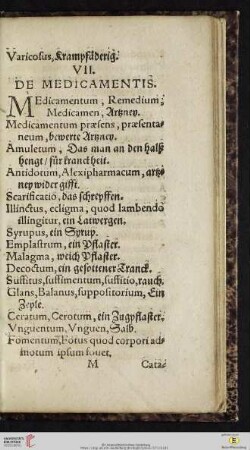 Varicosus, Krampfäderig.
VII.
DE MEDICAMENTIS.
MEdicamentum, Remedium,
Medicamen, Artzney.
Medicamentum præsens, præsenta-
neum, bewerte Artzney.
Amuletum, Das man an den halß
hengt/ für kranckheit.
Antidotum, Alexipharmacum, artz-
ney wider gifft.
Scarificatio, das schrepffen.
Illinctus, ecligma, quod lambendo
illingitur, ein Latwergen.
Syrupus, ein Syrup.
Emplastrum, ein Pflaster.
Malagma, weich Pflaster.
Decoctum, ein gesottener Tranck.
Suffitus, suffimentum, suffitio, rauch.
Glans, Balanus, suppositorium, Ein
Zepfle.
Ceratum, Cerotum, ein Zugpflaster.
Vnguentum, Vnguen, Salb.
Fomentum, Fotus quod corpori ad-
motum ipsum fovet.
M Cata-